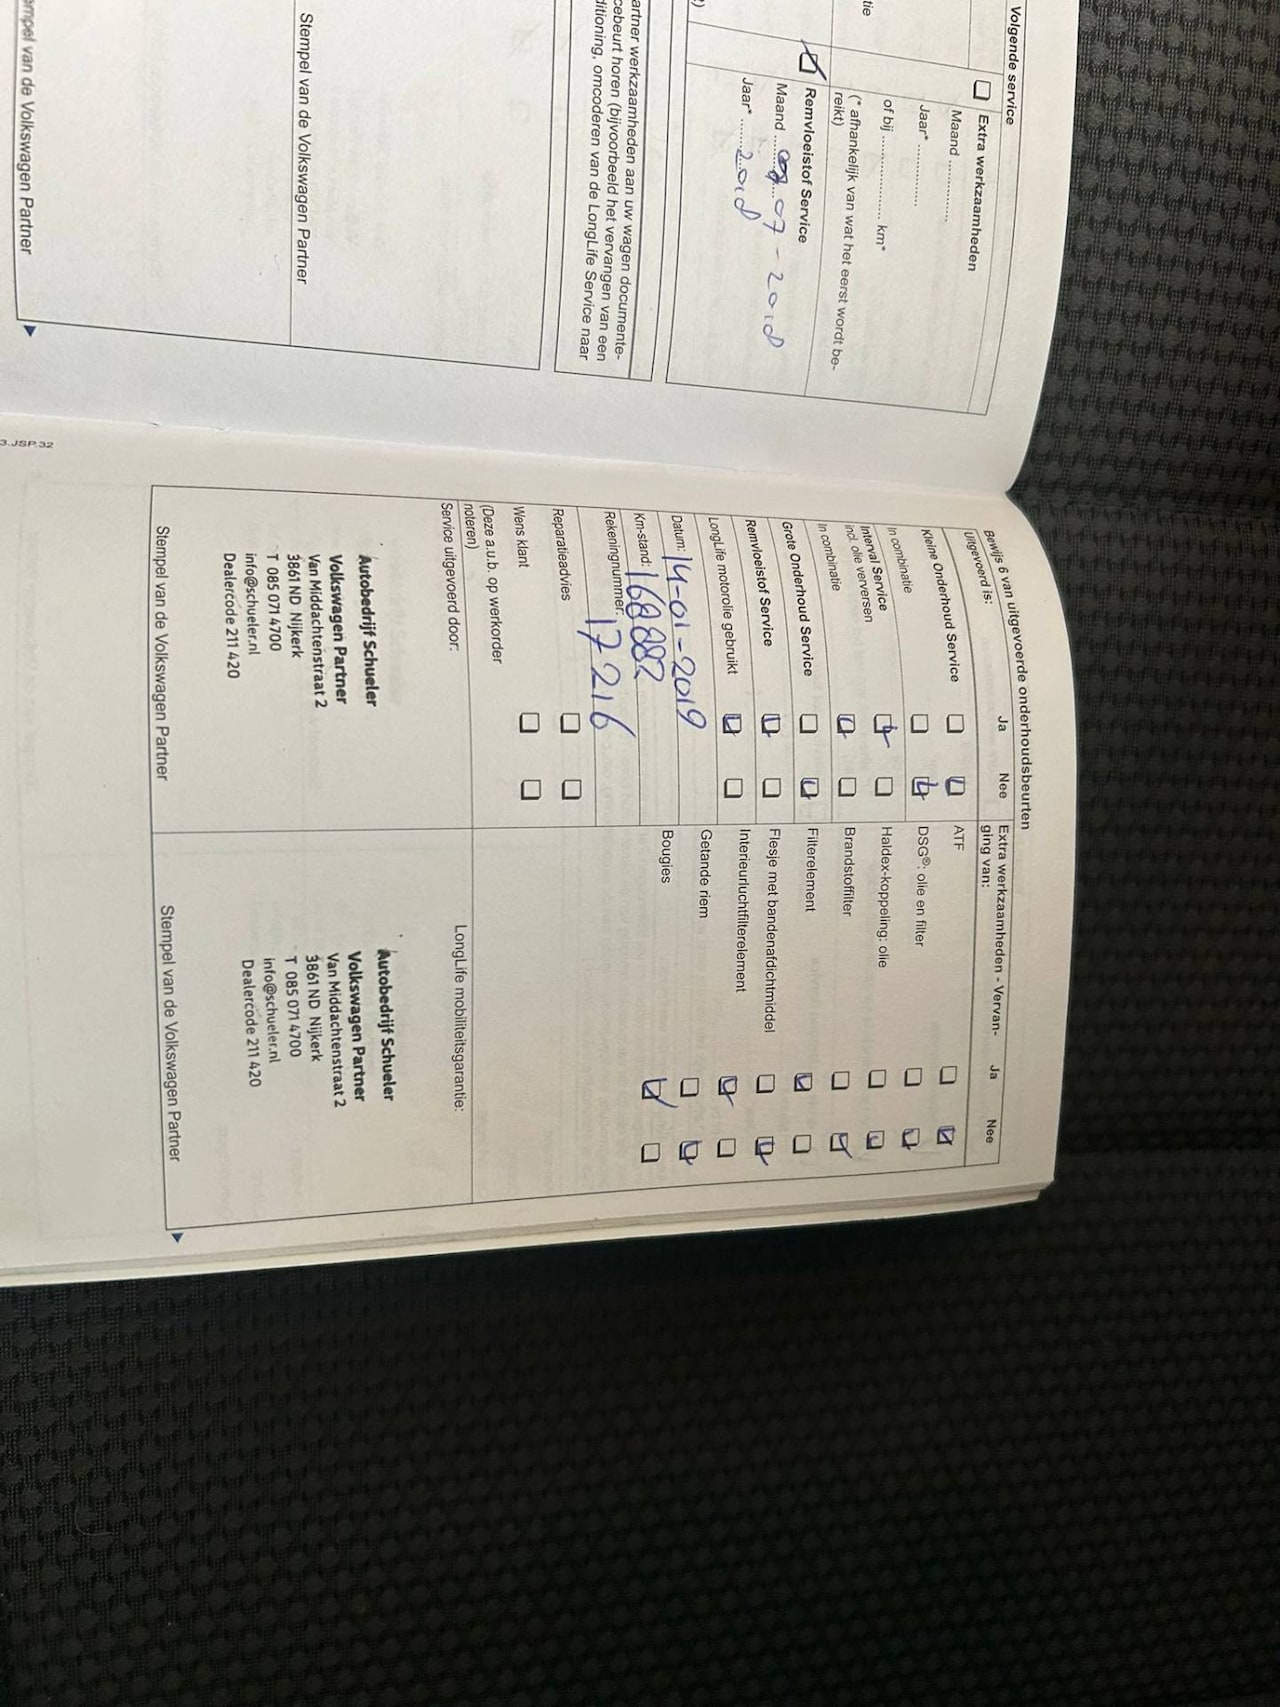 Volgende service
Extra werkzaamheden
Maand ..............
Jaar* ..............
of bij .................... km*
(* afhankelijk van wat het eerst wordt be-
reikt)
Remvloeistof Service
Maand 07 - 2018
Jaar* ........ 2018
artner werkzaamheden aan uw wagen documente-
cebeurt horen (bijvoorbeeld het vervangen van een
ditioning, omcoderen van de LongLife Service naar
Stempel van de Volkswagen Partner
mpel van de Volkswagen Partner
3.JSP.32
Bewijs 6 van uitgevoerde onderhoudsbeurten
Uitgevoerd is:
Ja Nee
Kleine Onderhoud Service
In combinatie
Interval Service
incl. olie verversen
In combinatie
Grote Onderhoud Service
Remvloeistof Service
LongLife motorolie gebruikt
Datum: 14-01-2019
Km-stand: 168882
Rekeningnummer: 17216
Reparatieadvies
Wens klant
(Deze a.u.b. op werkorder
noteren)
Service uitgevoerd door:
Autobedrijf Schueler
Volkswagen Partner
Van Middachtenstraat 2
3861 ND Nijkerk
T 085 071 4700
info@schueler.nl
Dealercode 211 420
Stempel van de Volkswagen Partner
Extra werkzaamheden - Vervan-
ging van:
Ja Nee
ATF
DSG®: olie en filter
Haldex-koppeling: olie
Brandstoffilter
Filterelement
Flesje met bandenafdichtmiddel
Interieurluchtfilterelement
Getande riem
Bougies
LongLife mobiliteitsgarantie:
Autobedrijf Schueler
Volkswagen Partner
Van Middachtenstraat 2
3861 ND Nijkerk
T 085 071 4700
info@schueler.nl
Dealercode 211 420
Stempel van de Volkswagen Partner